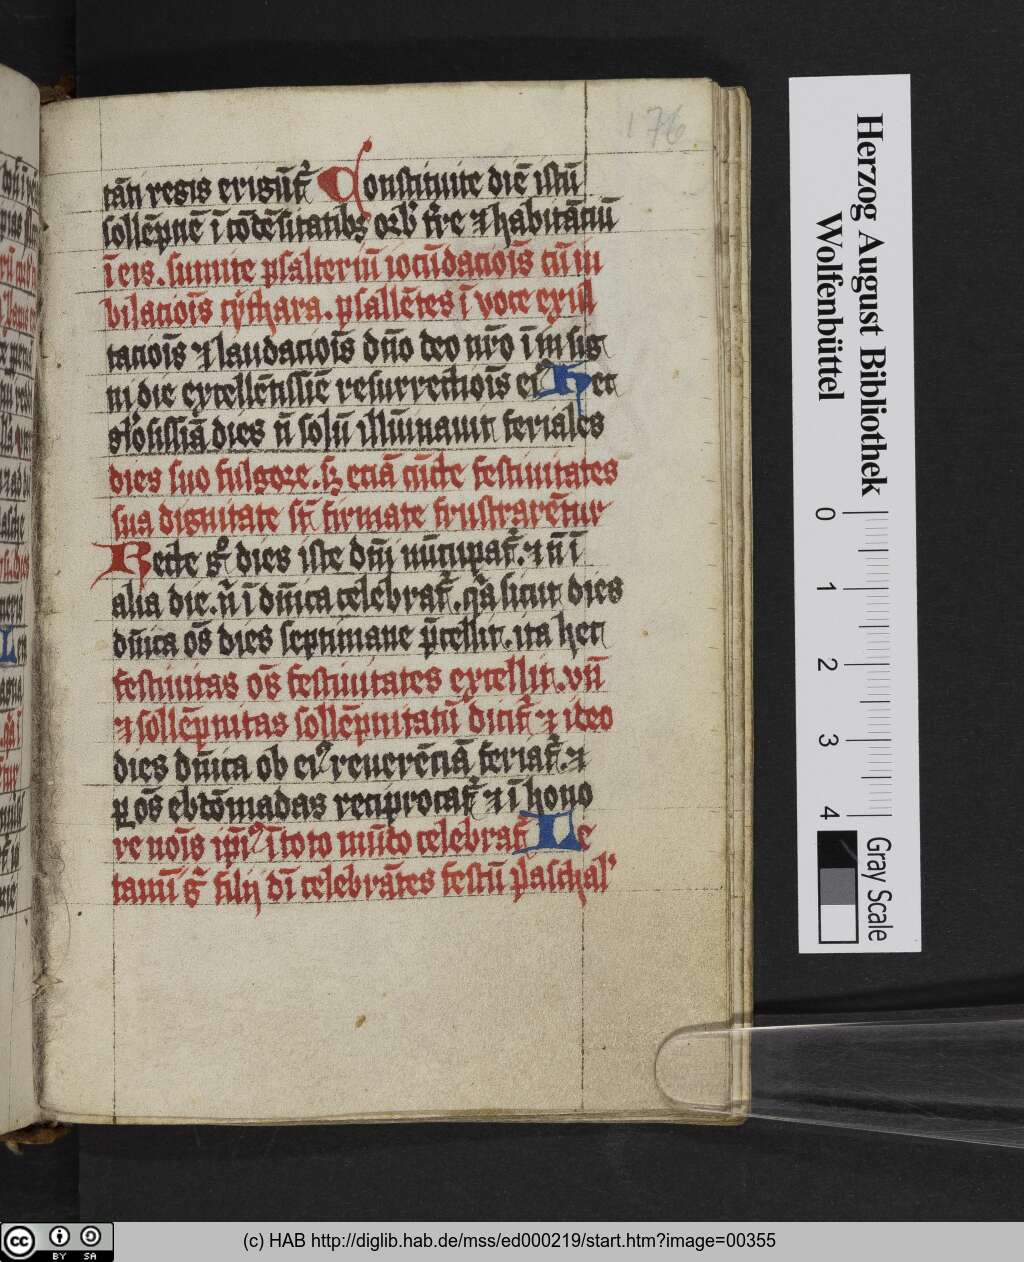 176
tāti regis erigūt᷑ Constituite diē istū
sollēpnē ī cōdēsitatibꝫ orb᷒ tr̄e ⁊ habitāciū
ī eis. sumite psalteriū iocūdaciōis cū iu
bilaciōis cythara. psallētes ī voce exul
taciōis ⁊ laudaciōis dn̄o deo nr̄o ī insig
ni die excellētissiē resurrectiōis ei᷒ Hec
glōsissīa dies n̄ solū illūinauit feriales
dies suo fulgore. sꝫ eciā cūcte festiuitates
sua dignitate st̄ firmate frustrarētur
Recte gͦ dies iste dn̄i nūcupat᷑. ⁊ n̄ ī
alia die. n̄ ī dn̄ica celebrat᷑. qͣ sicut dies
dn̄ica ōs dies septimane p̄cellit. ita hec
festiuitas ōs festiuitates excellit. vn̄
⁊ sollēpnitas sollēpnitatū dicit᷑ ⁊ ideo
dies dn̄ica ob ei᷒ reuerēciā feriat᷑. ⁊
ꝑ ōs ebdōmadas reciprocat᷑ ⁊ ī hono
re nōis ip̄i᷒ ī toto mūdo celebrat᷑ Le
tamī gͦ filij dī celebrātes festū paschal᷒
Herzog August Bibliothek
Wolfenbüttel
0 1 2 3 4
Gray Scale
cc BY SA
(c) HAB http://diglib.hab.de/mss/ed000219/start.htm?image=00355